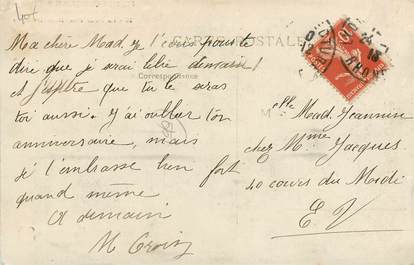 Ma chère Mad, je t'écris pour te
dire que je serai libre demain !
et j'espère que tu le seras
toi aussi. J'ai oublié ton
anniversaire, mais
je t'embrasse bien fort
quand même
A demain
CARTE POSTALE
Correspondance
Mlle Mad. Jeannin
chez Mme Jacques
40 cours du Midi
E. V